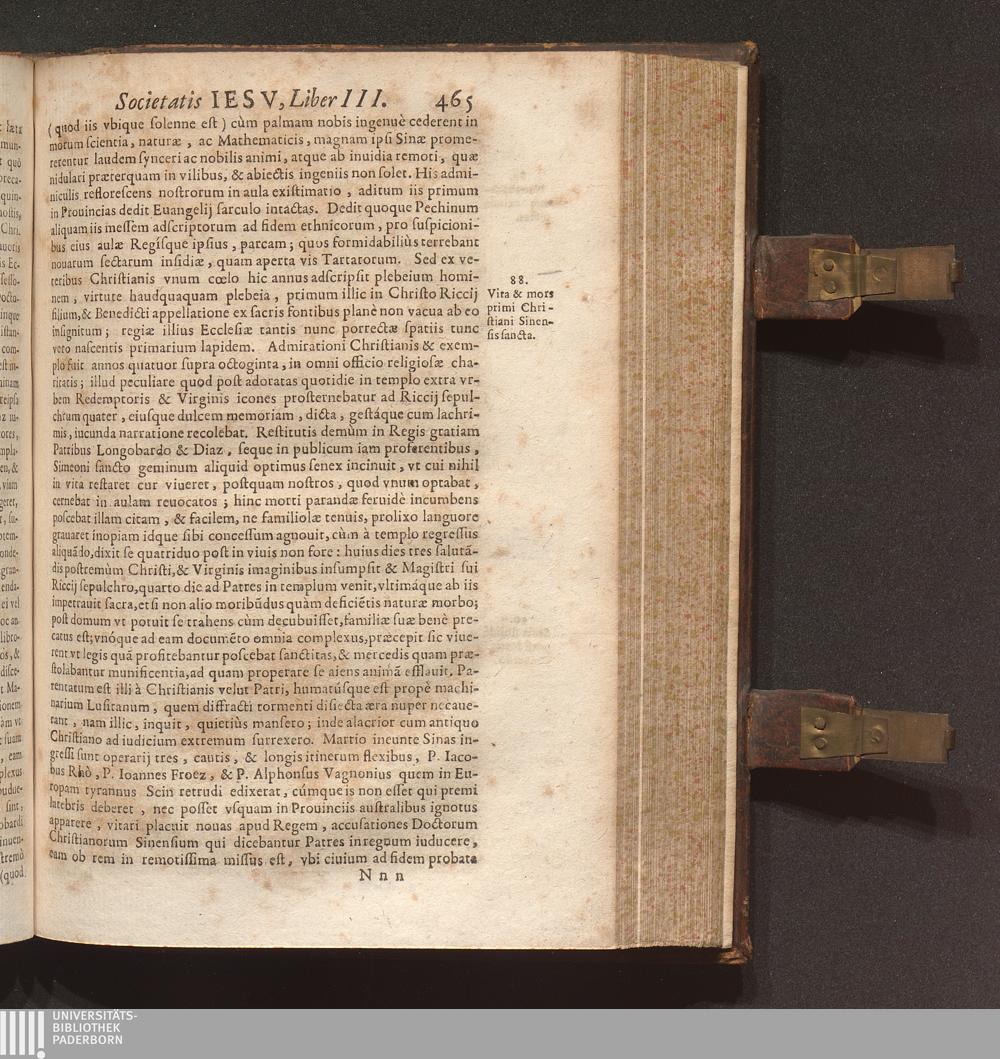 Societatis IESV, Liber III. 465
(quod iis vbique solenne est) cùm palmam nobis ingenuè cederent in
motum scientia, naturæ, ac Mathematicis, magnam ipsi Sinæ prome-
rerentur laudem synceri ac nobilis animi, atque ab inuidia remoti, quæ
nidulari præterquam in vilibus, & abiectis ingeniis non solet. His admi-
niculis reflorescens nostrorum in aula existimatio, aditum iis primum
in Prouincias dedit Euangelij sarculo intactas. Dedit quoque Pechinum
aliquam iis messem adscriptorum ad fidem ethnicorum, pro suspicioni-
bus eius aulæ Regisque ipsius, parcam; quos formidabiliùs terrebant
nouarum sectarum insidiæ, quam aperta vis Tartarorum. Sed ex ve-
teribus Christianis vnum cœlo hic annus adscripsit plebeium homi-
nem, virtute haudquaquam plebeia, primum illic in Christo Riccij
filium, & Benedicti appellatione ex sacris fontibus planè non vacua ab eo
insignitum; regiæ illius Ecclesiæ tantis nunc porrectæ spatiis tunc
vero nascentis primarium lapidem. Admirationi Christianis & exem-
plo fuit annos quatuor supra octoginta, in omni officio religiosæ cha-
ritatis; illud peculiare quod post adoratas quotidie in templo extra vr-
bem Redemptoris & Virginis icones prosternebatur ad Riccij sepul-
chrum quater, eiusque dulcem memoriam, dicta, gestáque cum lachri-
mis, iucunda narratione recolebat. Restitutis demùm in Regis gratiam
Patribus Longobardo & Diaz, seque in publicum iam proferentibus,
Simeoni sancto geminum aliquid optimus senex incinuit, vt cui nihil
in vita restaret cur viueret, postquam nostros, quod vnum optabat,
cernebat in aulam reuocatos; hinc morti parandæ feruidè incumbens
poscebat illam citam, & facilem, ne familiolæ tenuis, prolixo languore
grauaret inopiam idque sibi concessum agnouit, cùm à templo regressus
aliquãdo, dixit se quatriduo post in viuis non fore: huius dies tres salutã-
dis postremùm Christi, & Virginis imaginibus insumpsit & Magistri sui
Riccij sepulchro, quarto die ad Patres in templum venit, vltimáque ab iis
impetrauit sacra, etsi non alio moribũdus quàm deficiẽtis naturæ morbo;
post domum vt potuit se trahens cùm decubuisset, familiæ suæ benè pre-
catus est; vnóque ad eam documẽto omnia complexus, præcepit sic viue-
rent vt legis quã profitebantur poscebat sanctitas, & mercedis quam præ-
stolabantur munificentia, ad quam properare se aiens animã efflauit. Pa-
rentatum est illi à Christianis velut Patri, humatúsque est propè machi-
narium Lusitanum, quem diffracti tormenti disiecta æra nuper necaue-
rant, nam illic, inquit, quietiùs mansero; inde alacrior cum antiquo
Christiano ad iudicium extremum surrexero. Martio ineunte Sinas in-
gressi sunt operarij tres, cautis, & longis itinerum flexibus, P. Iaco-
bus Rhò, P. Ioannes Froez, & P. Alphonsus Vagnonius quem in Eu-
ropam tyrannus Scin retrudi edixerat, cúmque is non esset qui premi
latebris deberet, nec posset vsquam in Prouinciis australibus ignotus
apparere, vitari placuit nouas apud Regem, accusationes Doctorum
Christianorum Sinensium qui dicebantur Patres in regnum iuducere,
eam ob rem in remotissima missus est, vbi ciuium ad fidem probata
N n n
88.
Vita & mors
primi Chri-
stiani Sinen-
sis sancta.
UNIVERSITÄTS-
BIBLIOTHEK
PADERBORN